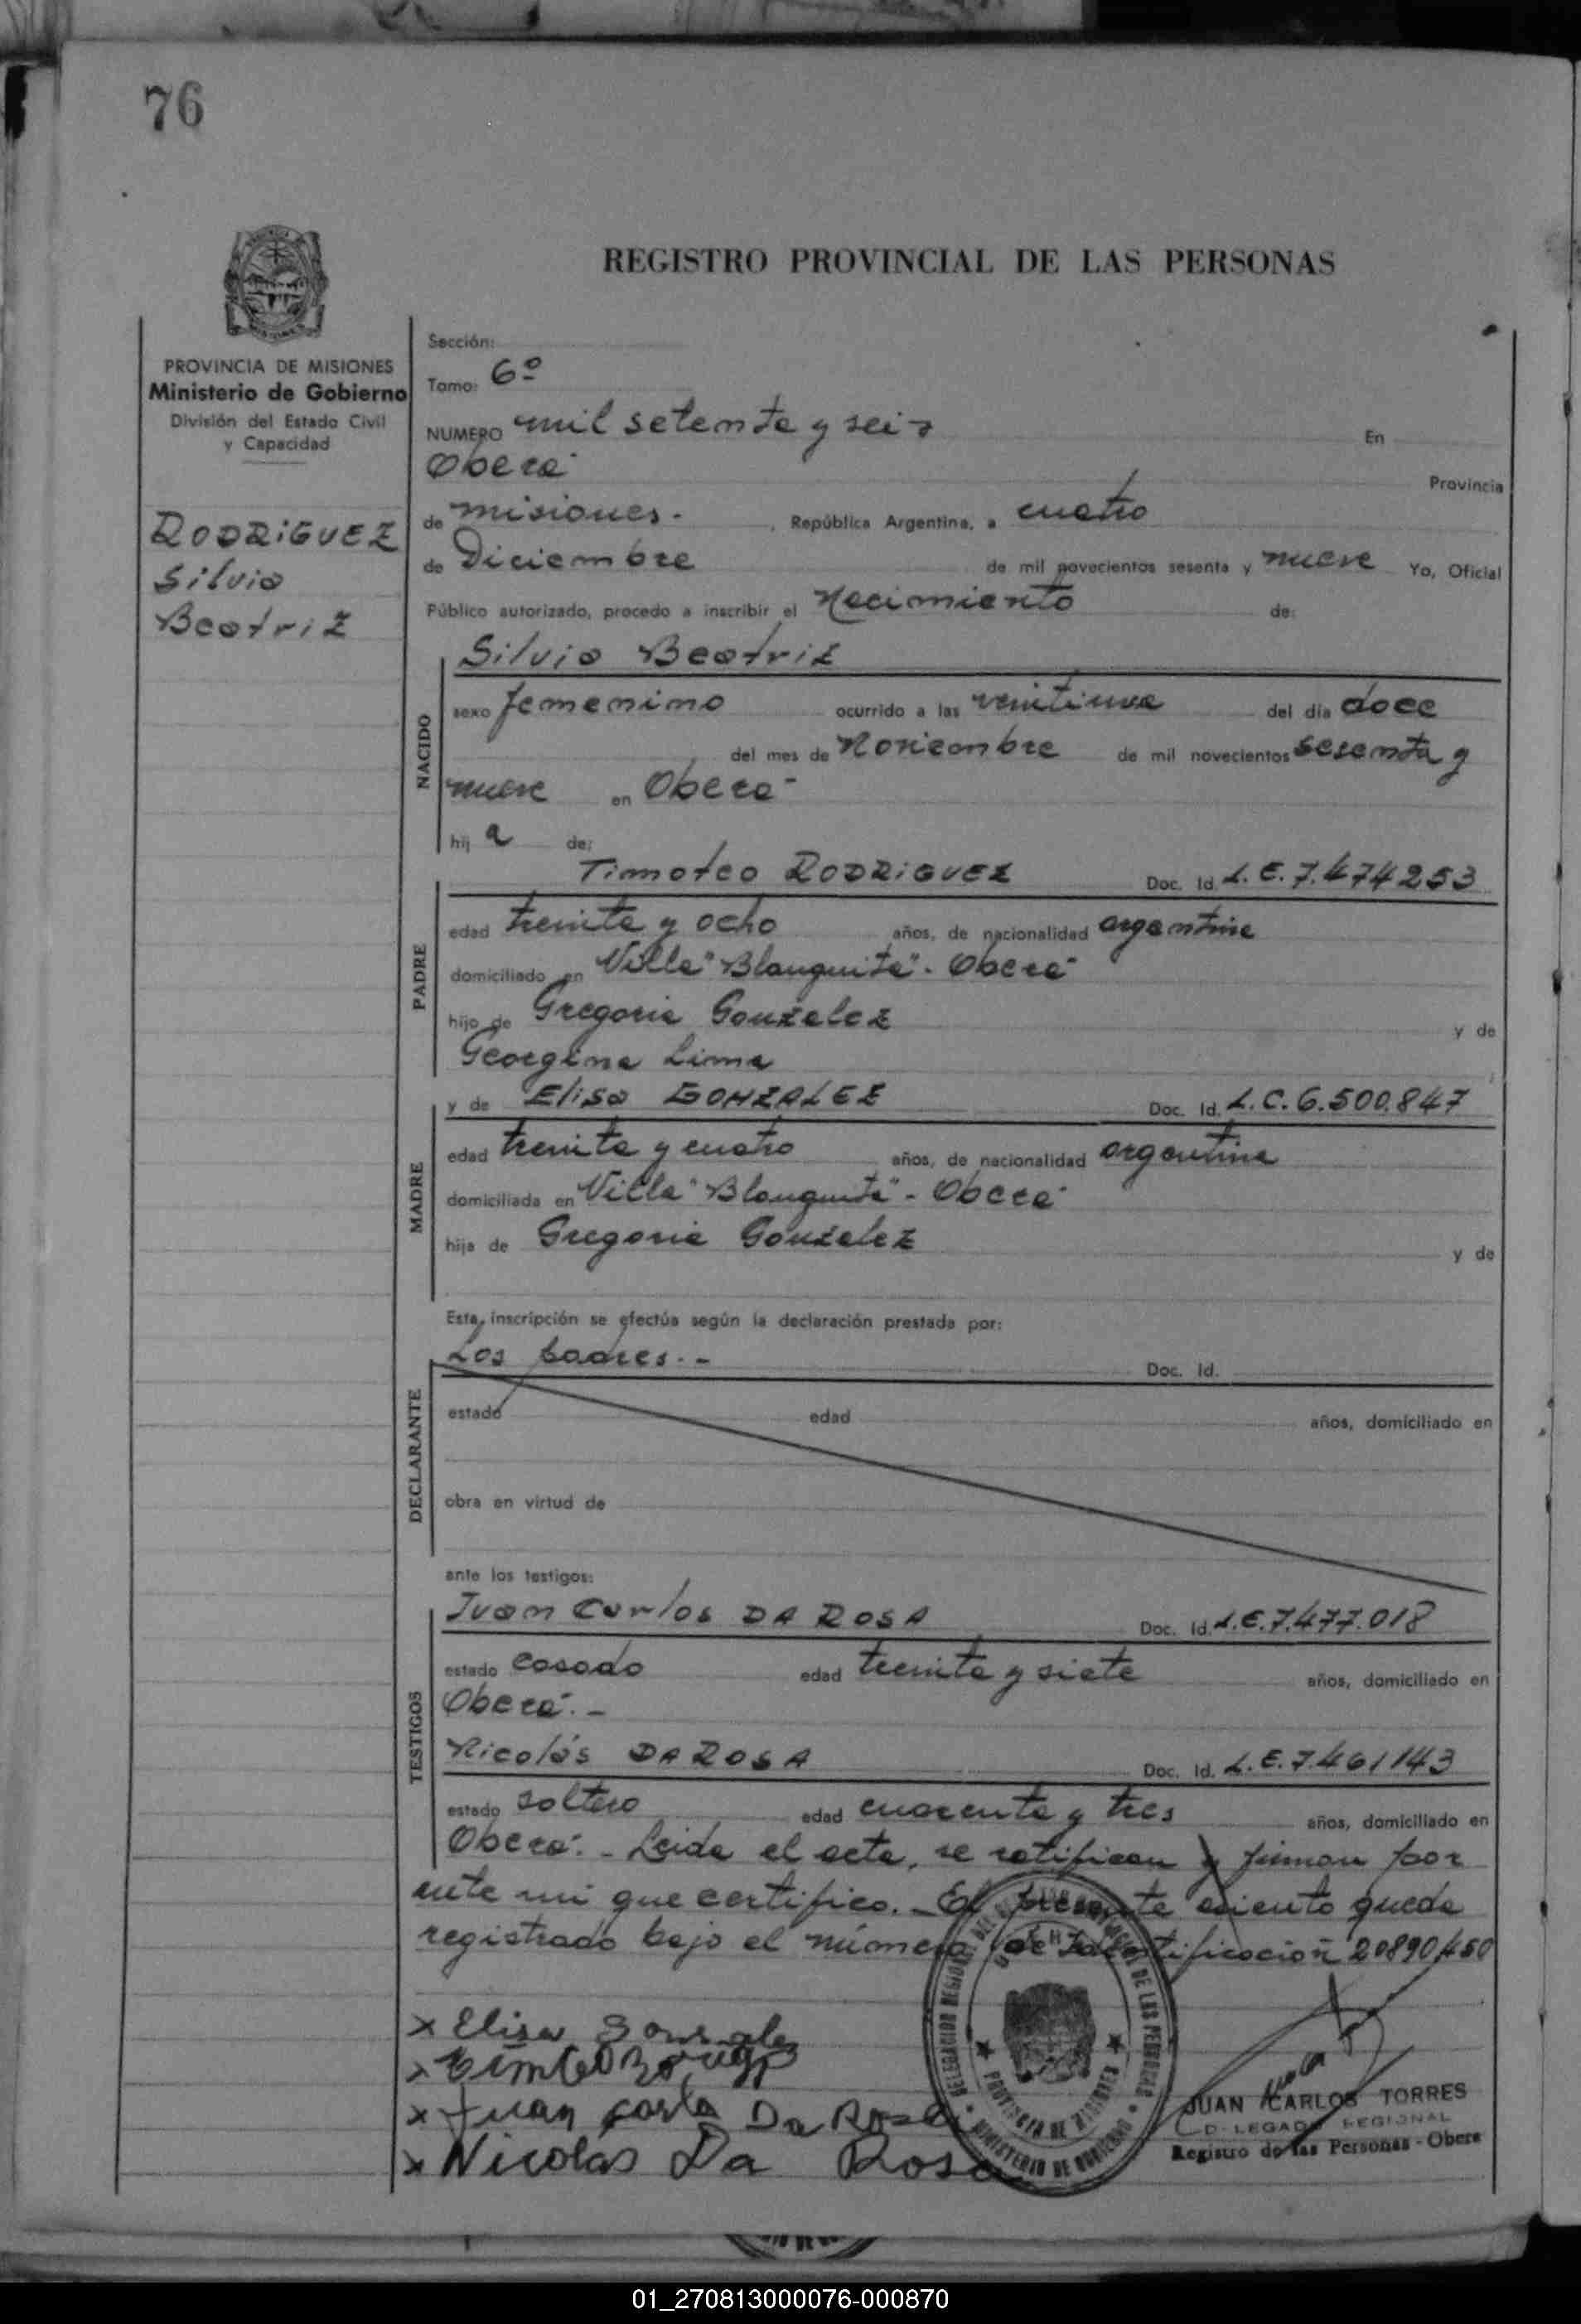 76
REGISTRO PROVINCIAL DE LAS PERSONAS
PROVINCIA DE MISIONES
Ministerio de Gobierno
División del Estado Civil
y Capacidad
RODRIGUEZ
Silvia
Beatriz
Sección:
Tomo: 6º
NUMERO mil setenta y seis En
Oberá Provincia
de Misiones.- , República Argentina, a cuatro
de Diciembre de mil novecientos sesenta y nueve Yo, Oficial
Público autorizado, procedo a inscribir el Nacimiento de:
Silvia Beatriz
NACIDO
sexo femenino ocurrido a las veintiuna del día doce
del mes de Noviembre de mil novecientos sesenta y
nueve en Oberá
hij a de:
PADRE
Timoteo RODRIGUEZ Doc. Id. L.E. 7.474253
edad treinta y ocho años, de nacionalidad argentina
domiciliado en Villa "Blanquita" - Oberá
hijo de Gregorio Gonzalez y de
Georgina Lima
MADRE
y de Elisa GONZALEZ Doc. Id. L.C. 6.500.847
edad treinta y cuatro años, de nacionalidad argentina
domiciliada en Villa "Blanquita" - Oberá
hija de Gregorio Gonzalez y de
Esta inscripción se efectúa según la declaración prestada por:
DECLARANTE
Los padres.- Doc. Id.
estado edad años, domiciliado en
obra en virtud de
ante los testigos:
TESTIGOS
Juan Carlos DA ROSA Doc. Id. L.E. 7.477.018
estado casado edad treinta y siete años, domiciliado en
Oberá.-
Nicolás DA ROSA Doc. Id. L.E. 7.461143
estado soltero edad cuarenta y tres años, domiciliado en
Oberá.- Leida el acta, se ratifican y firman por
ante mi que certifico.- El presente asiento queda
registrado bajo el número de Identificación 20890450
x Elisa Gonzalez
x
x Juan Carlo Da Rosa
x Nicolás Da Rosa
DELEGACION REGIONAL DE LAS PERSONAS
PROVINCIA DE MISIONES
MINISTERIO DE GOBIERNO
JUAN CARLOS TORRES
DELEGADO REGIONAL
Registro de las Personas - Obera
01_270813000076-000870